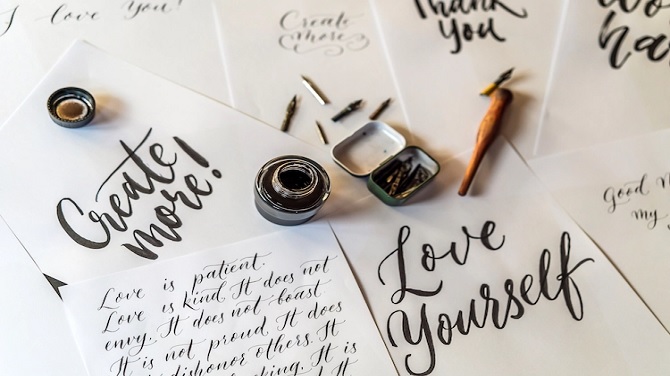 I love You!
Create
more
Thank
You
Create
more!
Good
my
Love is patient.
Love is kind It does not
envy. It does not boast
It is not proud It does
dishonor others. It
It is
Love
Yourself